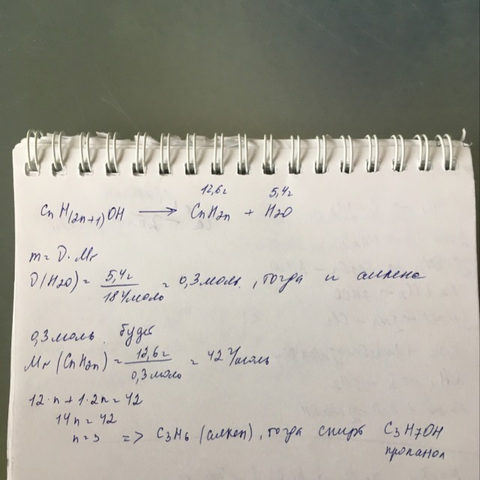 12,6г 5,4г
CnH(2n+1)OH → CnH2n + H2O
m = ν · Mr
ν(H2O) = 5,4г / 18 г/моль = 0,3 моль, тогда и алкена
0,3 моль будет
Mr (CnH2n) = 12,6г / 0,3 моль = 42 г/моль
12·n + 1·2n = 42
14n = 42
n = 3 => C3H6 (алкен), тогда спирт C3H7OH
пропанол